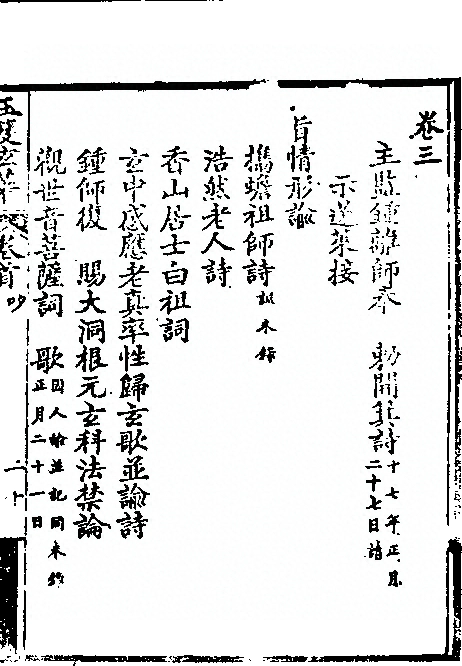 卷三
主監鍾離師奉　勅開箕詩十七年正月二十七日請
示送萊接
旨情形論
攜蟾祖師詩訊未錄
浩然老人詩
香山居士白祖詞
玄中感應老真率性歸玄歌並諭詩
鍾師復　賜大洞根元玄科法禁論
觀世音菩薩詞　歌因人論並記同未錄正月二十一日
玄華　卷首